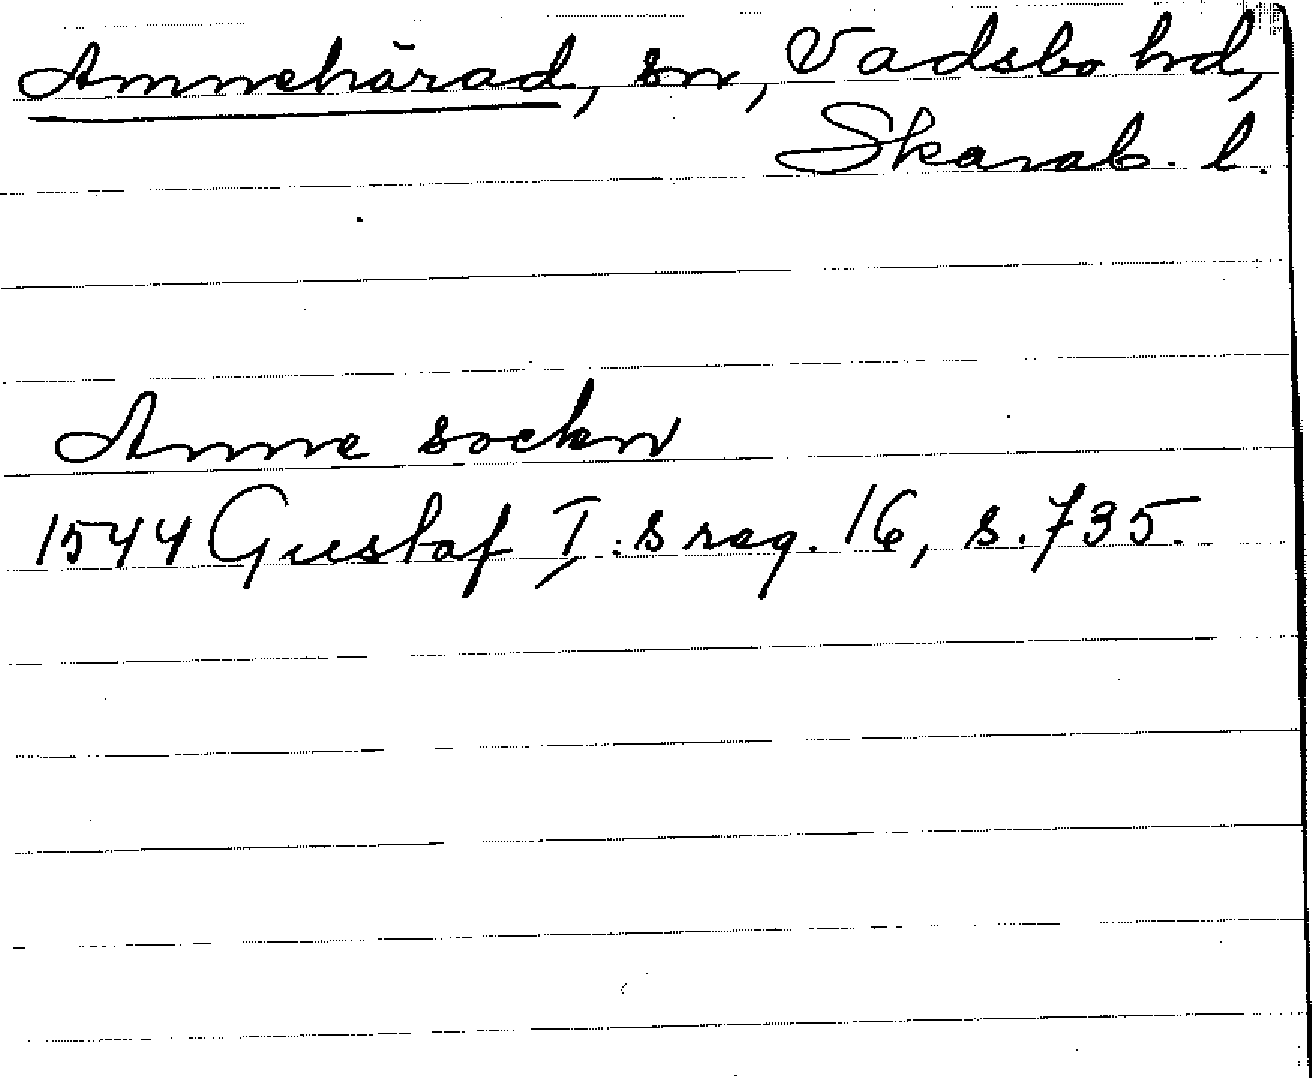 Amnehärad, sn, Vadsbo hd,
Skarab. l.
Amne sockn
1544 Gustaf I:s reg. 16, s. 735.